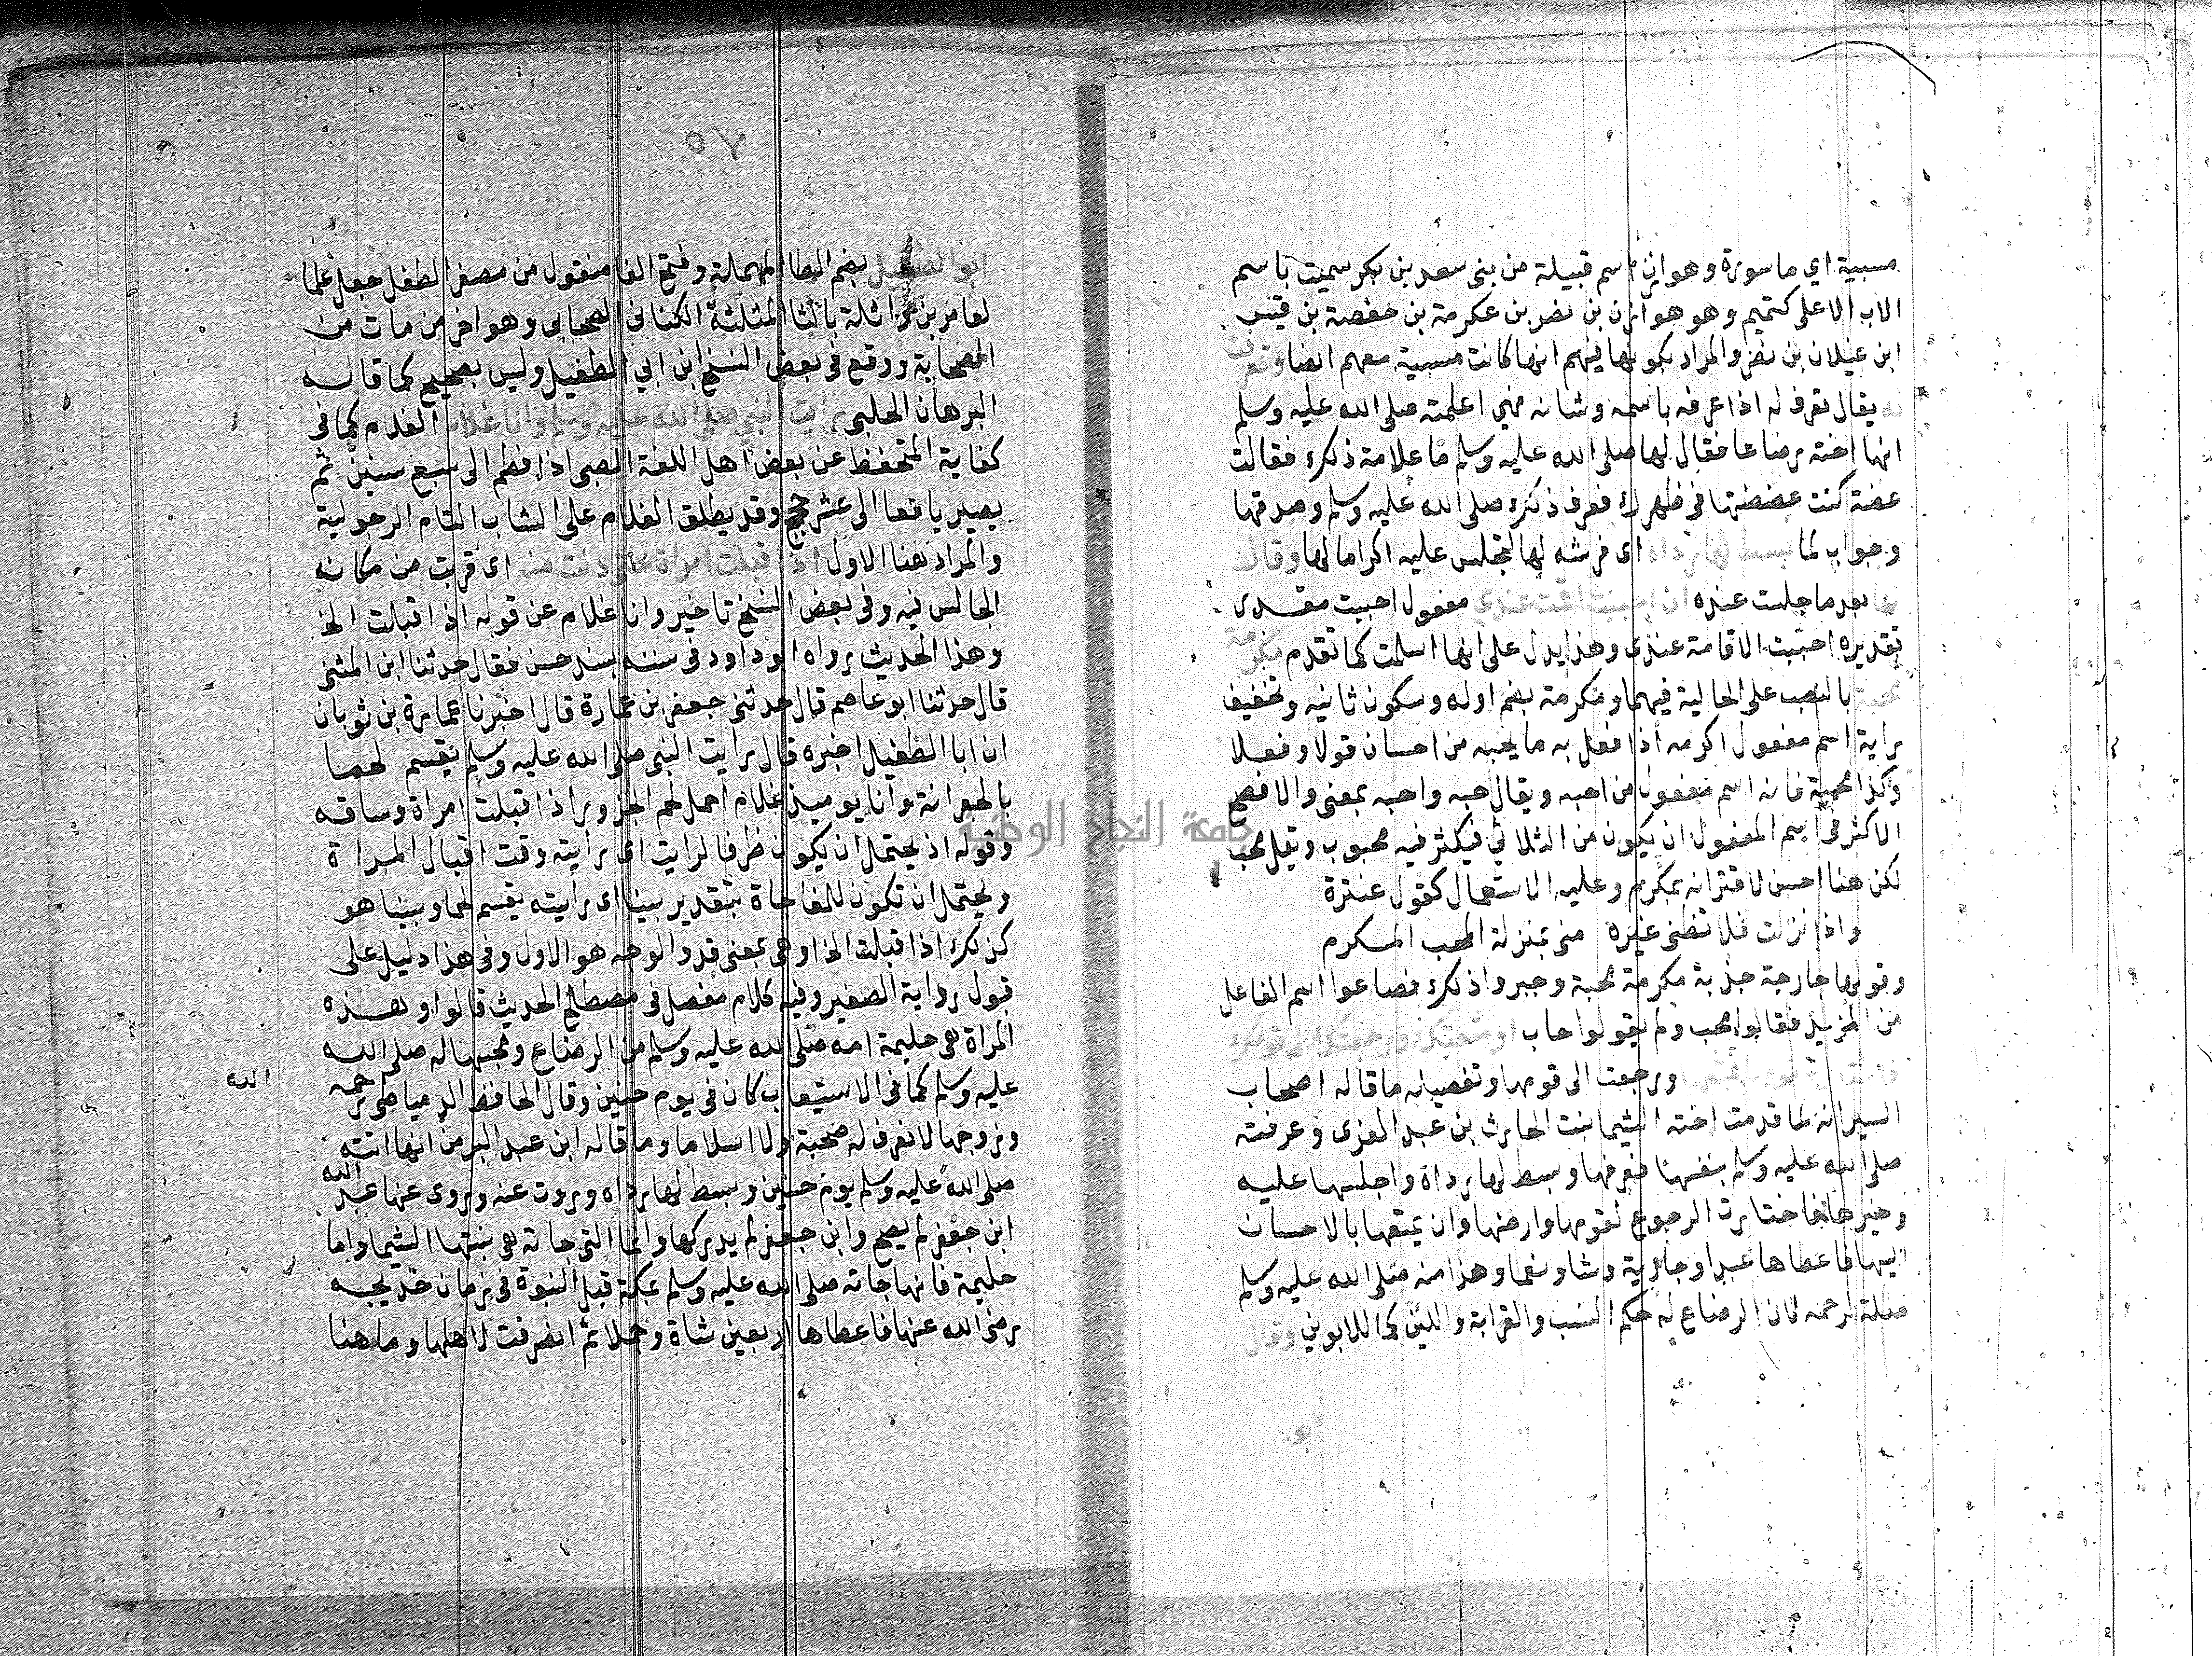 مسبية اي ماسورة وهوازن اسم قبيلة من بنى سعد بن بكر سميت باسم
الاب الاعلى كتميم وهو هوازن بن نصر بن عكرمة بن خفصة بن قيس
ابن عيلان بن نضر والمراد بكونها فيهم انها كانت مسبية معهم ايضا وتعرفت
له يقال تعرف له اذا عرفه باسمه وشانه فهي اعلمته صلى الله عليه وسلم
انها اخته رضاعا فقال لها صلى الله عليه وسلم ما علامة ذلك فقالت
عضة كنت عضضتها فى ظهرك فعرف ذلك صلى الله عليه وسلم وصدقها
وجواب لما بسط لها رداه اى فرشه لها لتجلس عليه اكراما لها وقال
لها بعد ما جلست عنده ان احببت اقمت عندي مفعول احببت مقدر
تقديره احببت الاقامة عندى وهذا يدل على انها اسلمت كما تقدم مكرمة
محبة بالنصب على الحالية فيهما ومكرمة بضم اوله وسكون ثانيه وتخفيف
رايه اسم مفعول اكرمه اذا فعل به ما يحبه من احسان قولا وفعلا
وكذا محبة فانه اسم مفعول من احبه ويقال حبه واحبه بمعنى والافصح
الاكثر فى اسم المفعول ان يكون من الثلاثي فيكثر فيه محبوب ويقل محب
لكن هنا احسن لاقترانه بمكرم وعليه الاستعمال كقول عنترة
واذ نزلت فلا تظنى غيره منى بمنزلة المحب المكرم
وقولها جارجة جذبة مكرمة محبة وجبروا ذلك فصاعوا اسم الفاعل
من المزيد فقالوا محب ولم يقولوا حاب او متعتك ورجعتك الى قومك
ورجعت الى قومها وتفصيله ما قاله اصحاب
السير انه لما قدمت اخته الشيما بنت الحارث بن عبد العزى وعرفته
صلى الله عليه وسلم بنفسها فعرفها وبسط لها رداة واجلسها عليه
وخيرها فاختارت الرجوع لقومها وارضها وان يمتعها بالاحسان
اليها فاعطاها عبدا وجارية وشاو نعما وهذا منه صلى الله عليه وسلم
صلة لرحمه لان الرضاع له حكم النسب والقرابة واللبن كما للابوين وقال
ابو
٥٧
ابو الطفيل بضم الطا المهملة وفتح الفا منقول من مصغر الطفل جعل علما
لعامر بن واثلة بالثا المثلثة الكنانى الصحابى وهو اخر من مات من
الصحابة ووقع فى بعض النسخ ابن ابي الطفيل وليس بصحيح كما قاله
البرهان الحلبى رايت النبي صلى الله عليه وسلم وانا غلام الغلام كما فى
كفاية المتحفظ عن بعض اهل اللغة الصبى اذا فطم الى سبع سنين ثم
يصير يافعا الى عشر حجج وقد يطلق الغلام على الشاب التام الرجولية
والمراد هنا الاول اذ اقبلت امراة حتى دنت منه اى قربت من مكانه
الجالس فيه وفى بعض النسخ تاخير وانا غلام عن قوله اذ اقبلت الخ
وهذا الحديث رواه ابو داود فى سننه بسند حسن فقال حدثنا ابن المثنى
قال حدثنا ابو عاصم قال حدثنى جعفر بن عمارة قال اخبرنا عمارة بن ثوبان
ان ابا الطفيل اخبره قال رايت النبى صلى الله عليه وسلم يقسم لحما
بالجعرانة وانا يوميذ غلام احمل لحم الجزور اذ اقبلت امراة وساقه
وقوله اذ يحتمل ان يكون ظرفا لرايت اى رايته وقت اقبال المراة
ويحتمل ان تكون للمفاجاة بتقدير بينا اى رايته يقسم لحما وبينا هو
كذلك اذ اقبلت الخ او هى بمعنى قد والوجه هو الاول وفى هذا دليل على
قبول رواية الصغير وفيه كلام مفصل فى مصطلح الحديث قالوا وهذه
المراة هى حليمة امه صلى الله عليه وسلم من الرضاع ومجيها له صلى الله
عليه وسلم كما فى الاستيعاب كان فى يوم حنين وقال الحافظ الدمياطى رحمه
الله
وزوجها لا نعرف له صحبة ولا اسلاما وما قاله ابن عبد البر من انها اتته
صلى الله عليه وسلم يوم حنين وبسط لها رداه وروت عنه وروى عنها عبد الله
ابن جعفر لم يصح وابن جعفر لم يدركها وانما التى جاته هى بنتها الشيما واما
حليمة فانها جاته صلى الله عليه وسلم بمكة قبل النبوة فى زمان خديجه
رضى الله عنها فاعطاها اربعين شاة وجملا ثم انصرفت لاهلها وما هنا
جامعة النجاح الوطنية